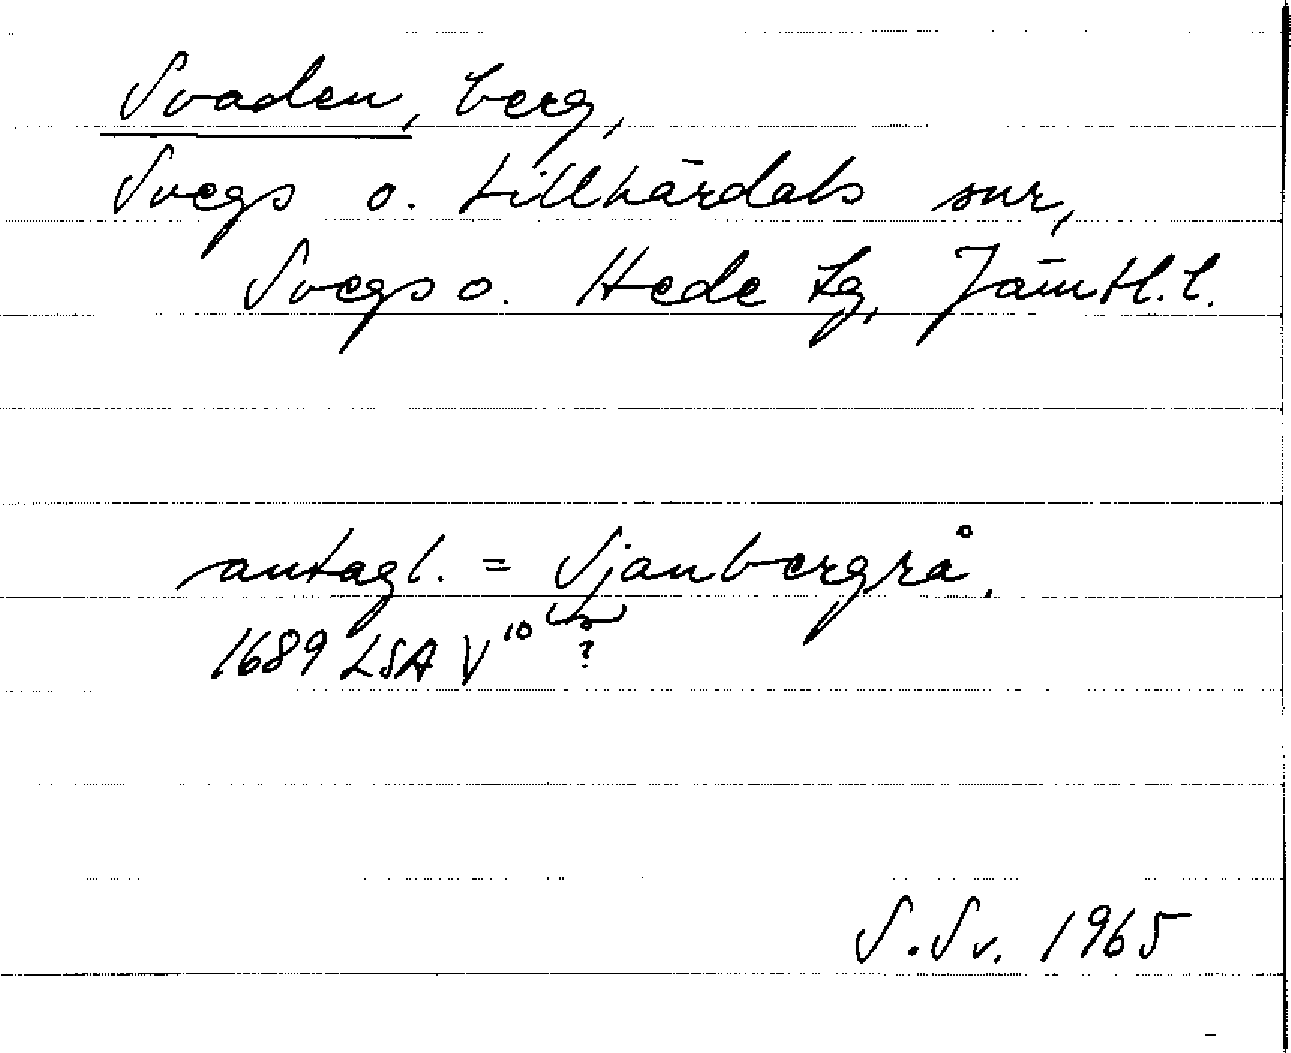 Svaden, berg,
Svegs o. Lillhärdals snr,
Svegs o. Hede tg, Jämtl. l.
antagl. = Sjanbergrå,
1689 LSA V¹⁰ ?
S. Sv. 1965